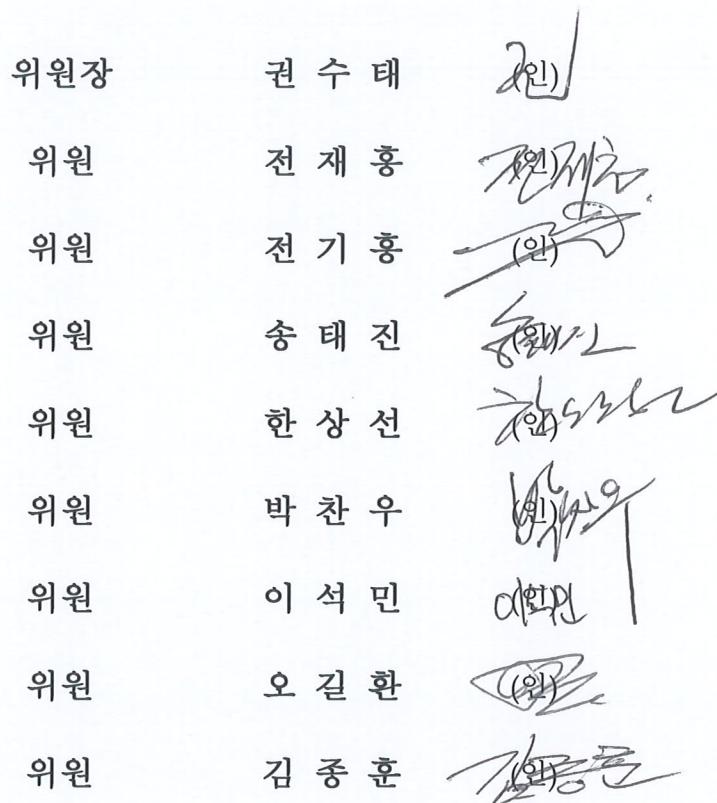 위원장 권 수 태 (인)
위원 전 재 홍 (인)
위원 전 기 홍 (인)
위원 송 태 진 (인)
위원 한 상 선 (인)
위원 박 찬 우 (인)
위원 이 석 민 (인)
위원 오 길 환 (인)
위원 김 종 훈 (인)